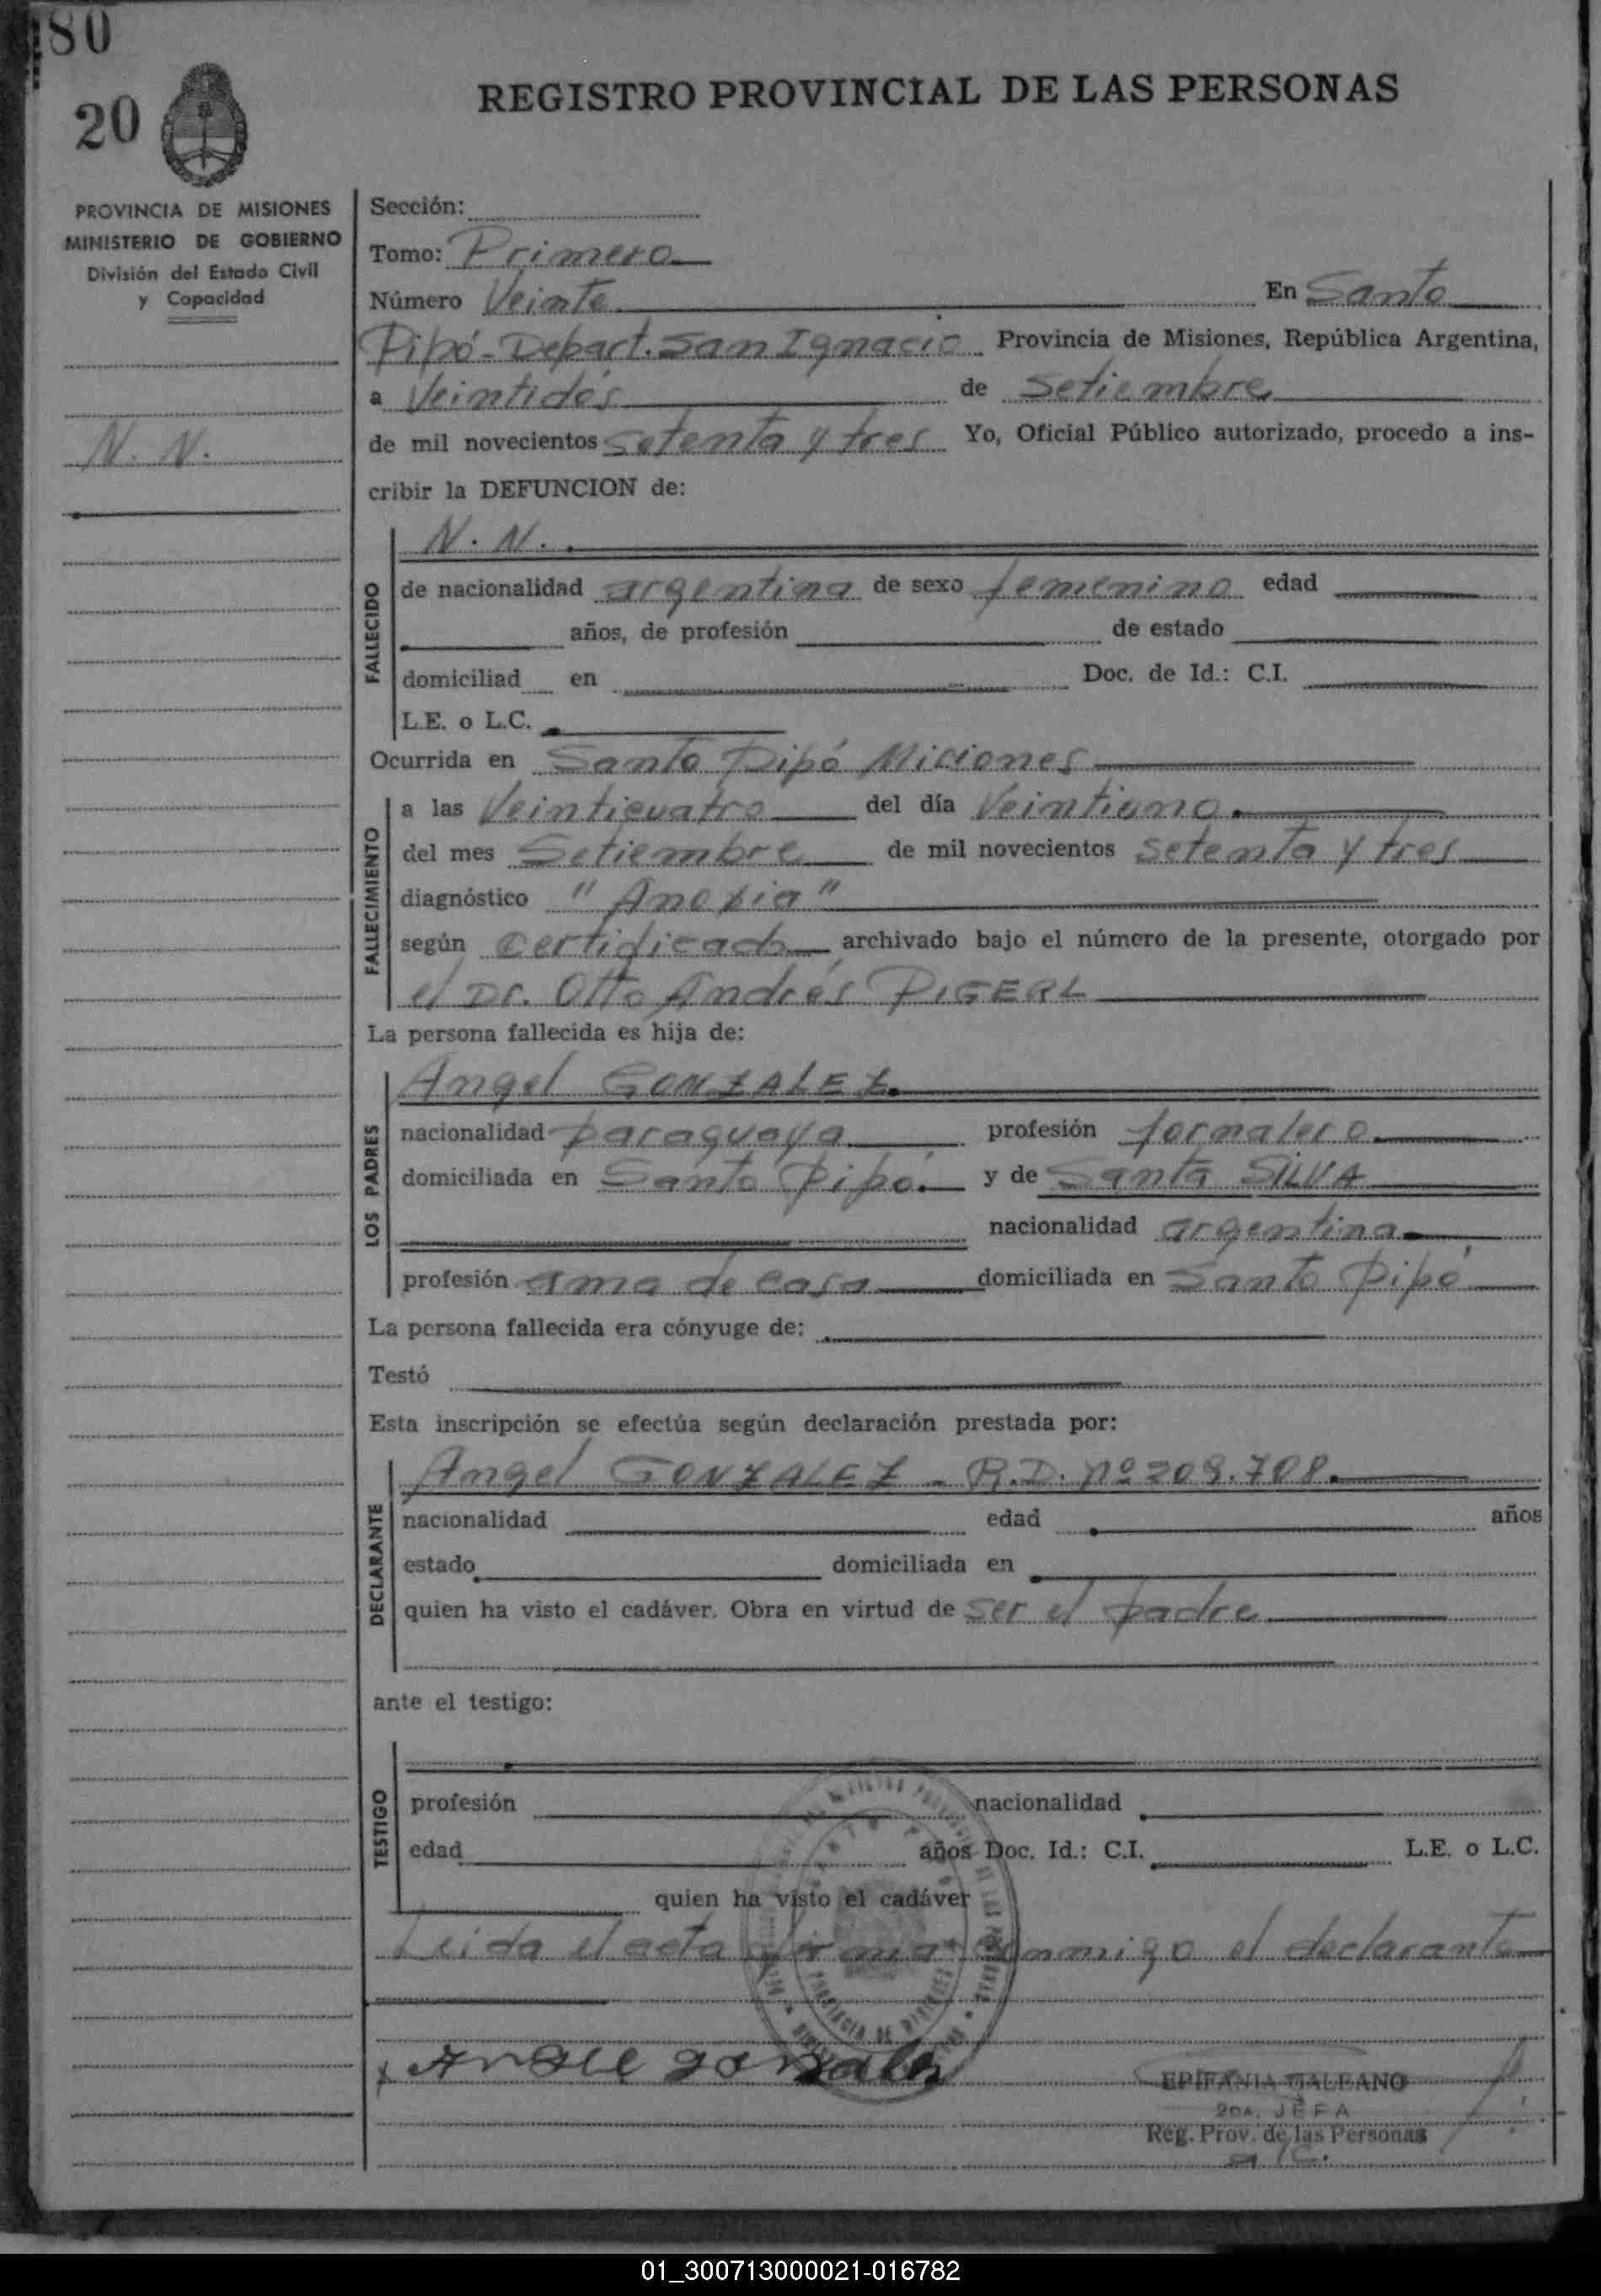 80
20
REGISTRO PROVINCIAL DE LAS PERSONAS
PROVINCIA DE MISIONES
MINISTERIO DE GOBIERNO
División del Estado Civil
y Capacidad
N. N.
Sección:
Tomo: Primero
Número Veinte En Santo
Pipó - Depart. San Ignacio Provincia de Misiones, República Argentina,
a Veintidós de Setiembre
de mil novecientos setenta y tres Yo, Oficial Público autorizado, procedo a ins-
cribir la DEFUNCION de:
FALLECIDO
N. N.
de nacionalidad argentina de sexo femenino edad
años, de profesión de estado
domiciliad en Doc. de Id.: C.I.
L.E. o L.C.
Ocurrida en Santo Pipó Misiones
FALLECIMIENTO
a las Veinticuatro del día Veintiuno
del mes Setiembre de mil novecientos setenta y tres
diagnóstico "Anoxia"
según certificado archivado bajo el número de la presente, otorgado por
el Dr. Otto Andrés PIGERL
La persona fallecida es hija de:
LOS PADRES
Angel GONZALEZ
nacionalidad paraguaya profesión jornalero
domiciliada en Santo Pipó y de Santa SILVA
nacionalidad argentina
profesión ama de casa domiciliada en Santo Pipó
La persona fallecida era cónyuge de:
Testó
Esta inscripción se efectúa según declaración prestada por:
DECLARANTE
Angel GONZALEZ - R.D. nº 209.708
nacionalidad edad años
estado domiciliada en
quien ha visto el cadáver. Obra en virtud de ser el padre
ante el testigo:
TESTIGO
profesión nacionalidad
edad años Doc. Id.: C.I. L.E. o L.C.
quien ha visto el cadáver
Leida el acta firma conmigo el declarante
PROVINCIA DE MISIONES
EPIFANIA GALEANO
2DA. JEFA
Reg. Prov. de las Personas
a/c.
01_300713000021-016782